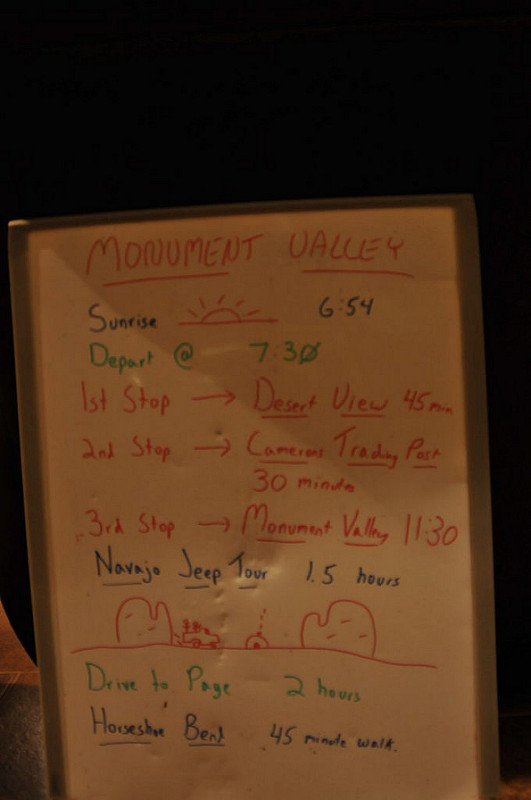 MONUMENT VALLEY
Sunrise 6:54
Depart @ 7:30
1st Stop → Desert View 45 min
2nd Stop → Camerons Trading Post
30 minutes
3rd Stop → Monument Valley 11:30
Navajo Jeep Tour 1.5 hours
Drive to Page 2 hours
Horseshoe Bend 45 minute walk.